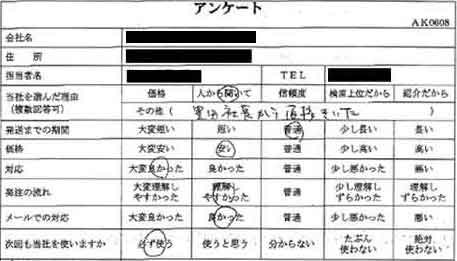 アンケート
AK0608
会社名
住 所
担当者名 TEL
当社を選んだ理由 価格 人から聞いて 信頼度 検索上位だから 紹介だから
(複数回答可) その他( 社長から直接きいた )
発送までの期間 大変短い 短い 普通 少し長い 長い
価格 大変安い 安い 普通 少し高い 高い
対応 大変良かった 良かった 普通 少し悪かった 悪い
発注の流れ 大変理解しやすかった 理解しやすかった 普通 少し理解しずらかった 理解しずらかった
メールでの対応 大変良かった 良かった 普通 少し悪かった 悪い
次回も当社を使いますか 必ず使う 使うと思う 分からない たぶん使わない 絶対使わない